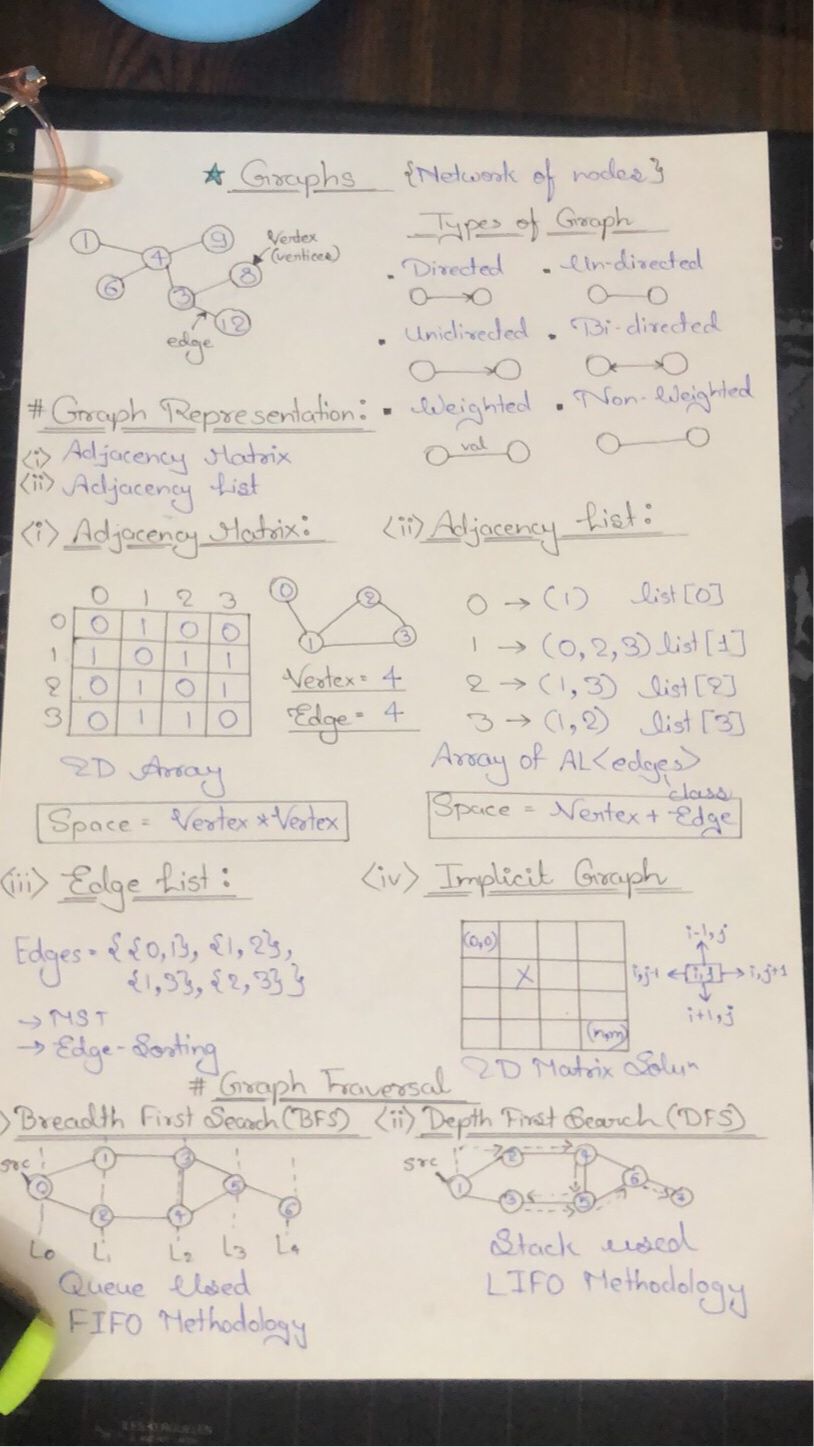 ★ Graphs {Network of nodes}
Types of Graph
1 4 9 6 3 8 12
Vertex
(vertices)
edge
• Directed • Un-directed
• Unidirected • Bi-directed
• Weighted • Non-Weighted
val
# Graph Representation:
<i> Adjacency Matrix
<ii> Adjacency List
<i> Adjacency Matrix:
0 1 2 3
0 0 1 0 0
1 1 0 1 1
2 0 1 0 1
3 0 1 1 0
0 2 1 3
Vertex = 4
Edge = 4
2D Array
Space = Vertex * Vertex
<ii> Adjacency List:
0 → (1) list[0]
1 → (0,2,3) list[1]
2 → (1,3) list[2]
3 → (1,2) list[3]
Array of AL<edges>
class
Space = Vertex + Edge
<iii> Edge List:
Edges = {{0,1}, {1,2},
{1,3}, {2,3}}
→ MST
→ Edge-Sorting
<iv> Implicit Graph
(0,0)
X
(n,m)
i-1,j
i,j-1 i,j i,j+1
i+1,j
2D Matrix Solun
# Graph Traversal
) Breadth First Search (BFS)
src
0 1 2 3 4 5 6
L0 L1 L2 L3 L4
Queue Used
FIFO Methodology
<ii> Depth First Search (DFS)
src
1 2 4 3 5 6
Stack used
LIFO Methodology